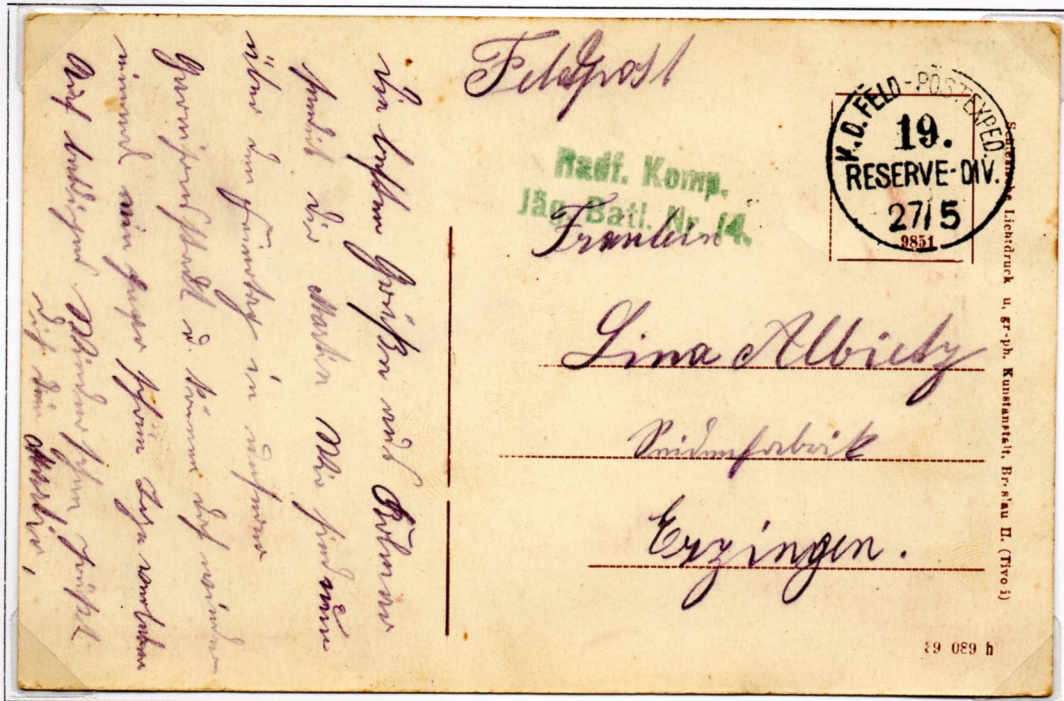 Feldpost
K.D. FELD-POSTEXPED.
19.
RESERVE-DIV.
27/5
9851
Radf. Komp.
Jäg. Batl. Nr. 14.
Fräulein
Lina Albietz
Seidenfabrik
Erzingen.
Die besten Grüße aus Kolmar
sendet dir Martin Wir sind nun
über den Feiertag in unserer
Garnisonstadt u. können doch wieder
einmal ein paar schöne Tage verleben
Auf baldiges Wiedersehen grüßt
dich dein Martin,
Lichtdruck u. graph. Kunstanstalt, Breslau II. (Tivoli)
39 089 h